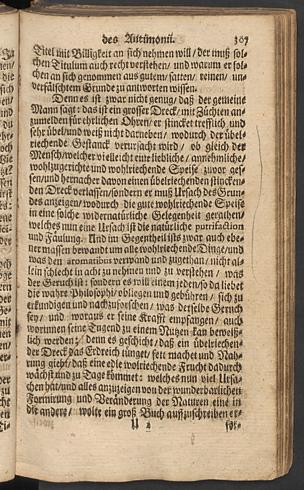 des Antimonii. 307
Titel mit Billigkeit an sich nehmen will / der muß sol-
chen Titulum auch recht verstehen / und warum er sol-
chen an sich genommen aus gutem / satten / reinen / un-
verfälschtem Grunde zu antworten wissen.
Denn es ist zwar nicht genug / daß der gemeine
Mann sagt: das ist ein grosser Dreck / mit Züchten an-
zumelden für ehrlichen Ohren / er stincket trefflich und
sehr übel / und weiß nicht darneben / wodurch der übel-
riechende Gestanck verursacht wird / ob gleich der
Mensch / welcher vielleicht eine liebliche / annehmliche /
wohlzugericht und wohlriechende Speise zuvor ges-
sen / und hernacher davon einen übelriechenden stincken-
den Dreck verlassen / sondern er muß Ursach des Grun-
des anzeigen / wodurch die gute wohlriechende Speise
in eine solche widernatürliche Gelegenheit gerathen /
welches nun eine Ursach ist die natürliche putrifaction
und Fäulung. Und im Gegentheil ists zwar auch ebe-
ner massen bewandt um alle wohlriechende Dinge / und
was den aromatibus verwand und zugethan / nicht al-
lein schlecht in acht zu nehmen und zu verstehen / was
der Geruch ist: sondern es will einem jeden / so da liebet
die wahre Philosophi / obliegen und gebühren / sich zu
erkundigen und nachzuforschen / was derselbe Geruch
sey / und woraus er seine Krafft empfangen / auch
worinnen seine Tugend zu einem Nutzen kan beweiß-
lich werden: / denn es geschicht / daß ein übelriechen-
der Dreck das Erdreich tünget / fett machet und Nah-
rung giebt / daß eine edle wolriechende Frucht dadurch
wächst und zu Tage kömmet: welches nun viel Ursa-
chen hat / und alles anzuzeigen von der wunderbarlichen
Formirung und Veränderung der Naturen eine in
die andere / wolte ein groß Buch auffzuschreiben er-
U 2 for-